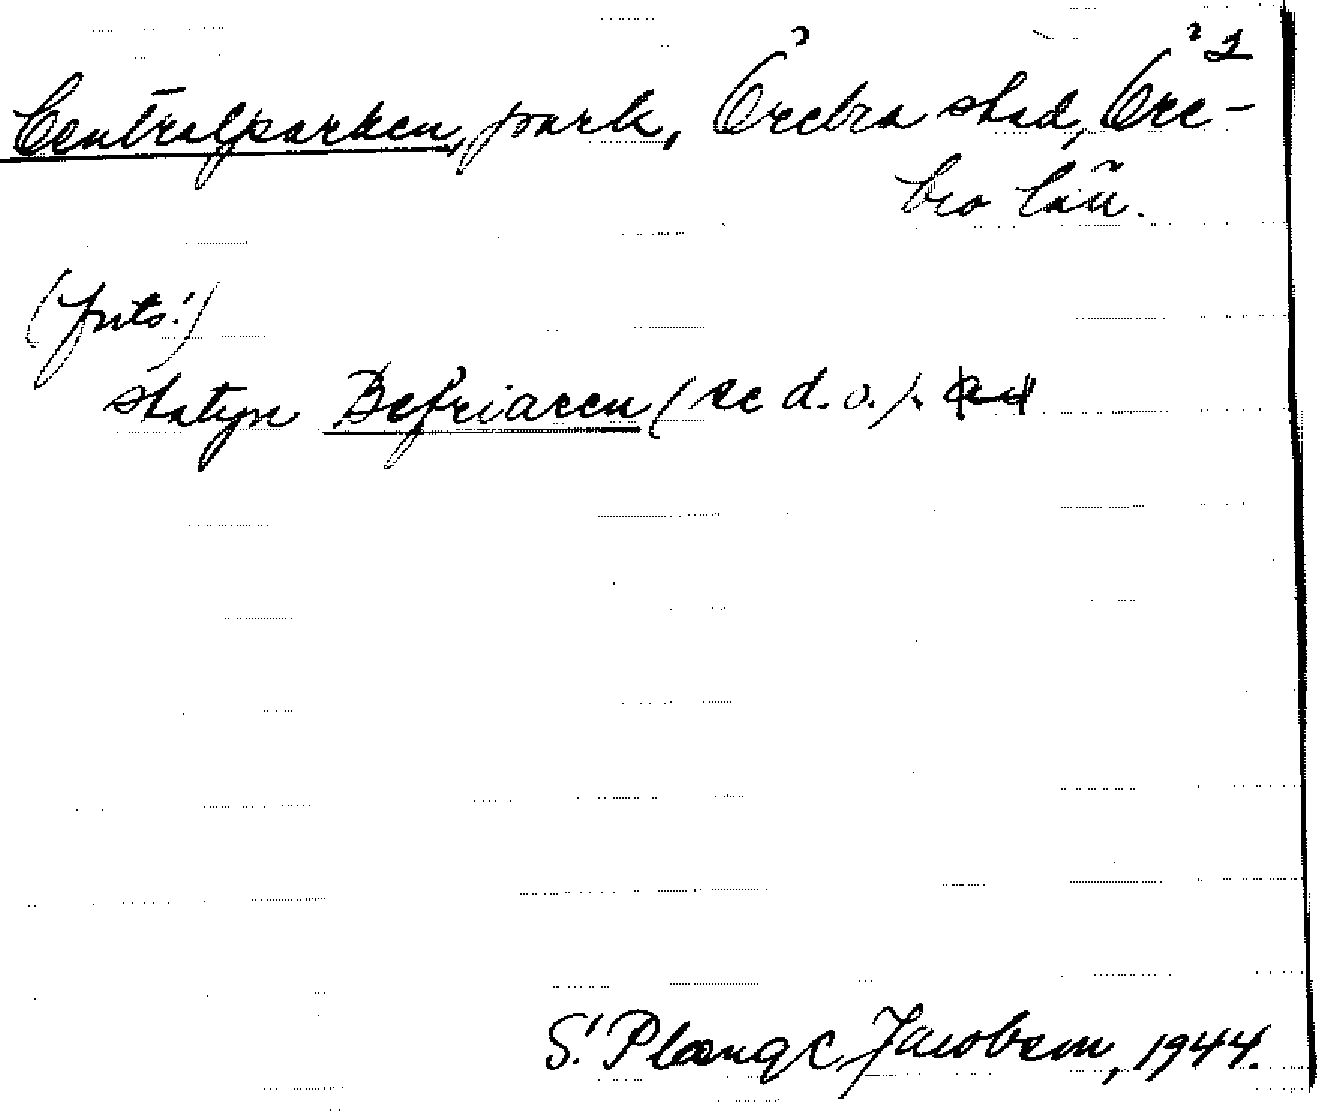 2
Centralparken, park, Örebro stad, Öre-
bro län.
(forts.)
statyn Befriaren (se d. o.).
S. Ploængc Jacobson, 1944.